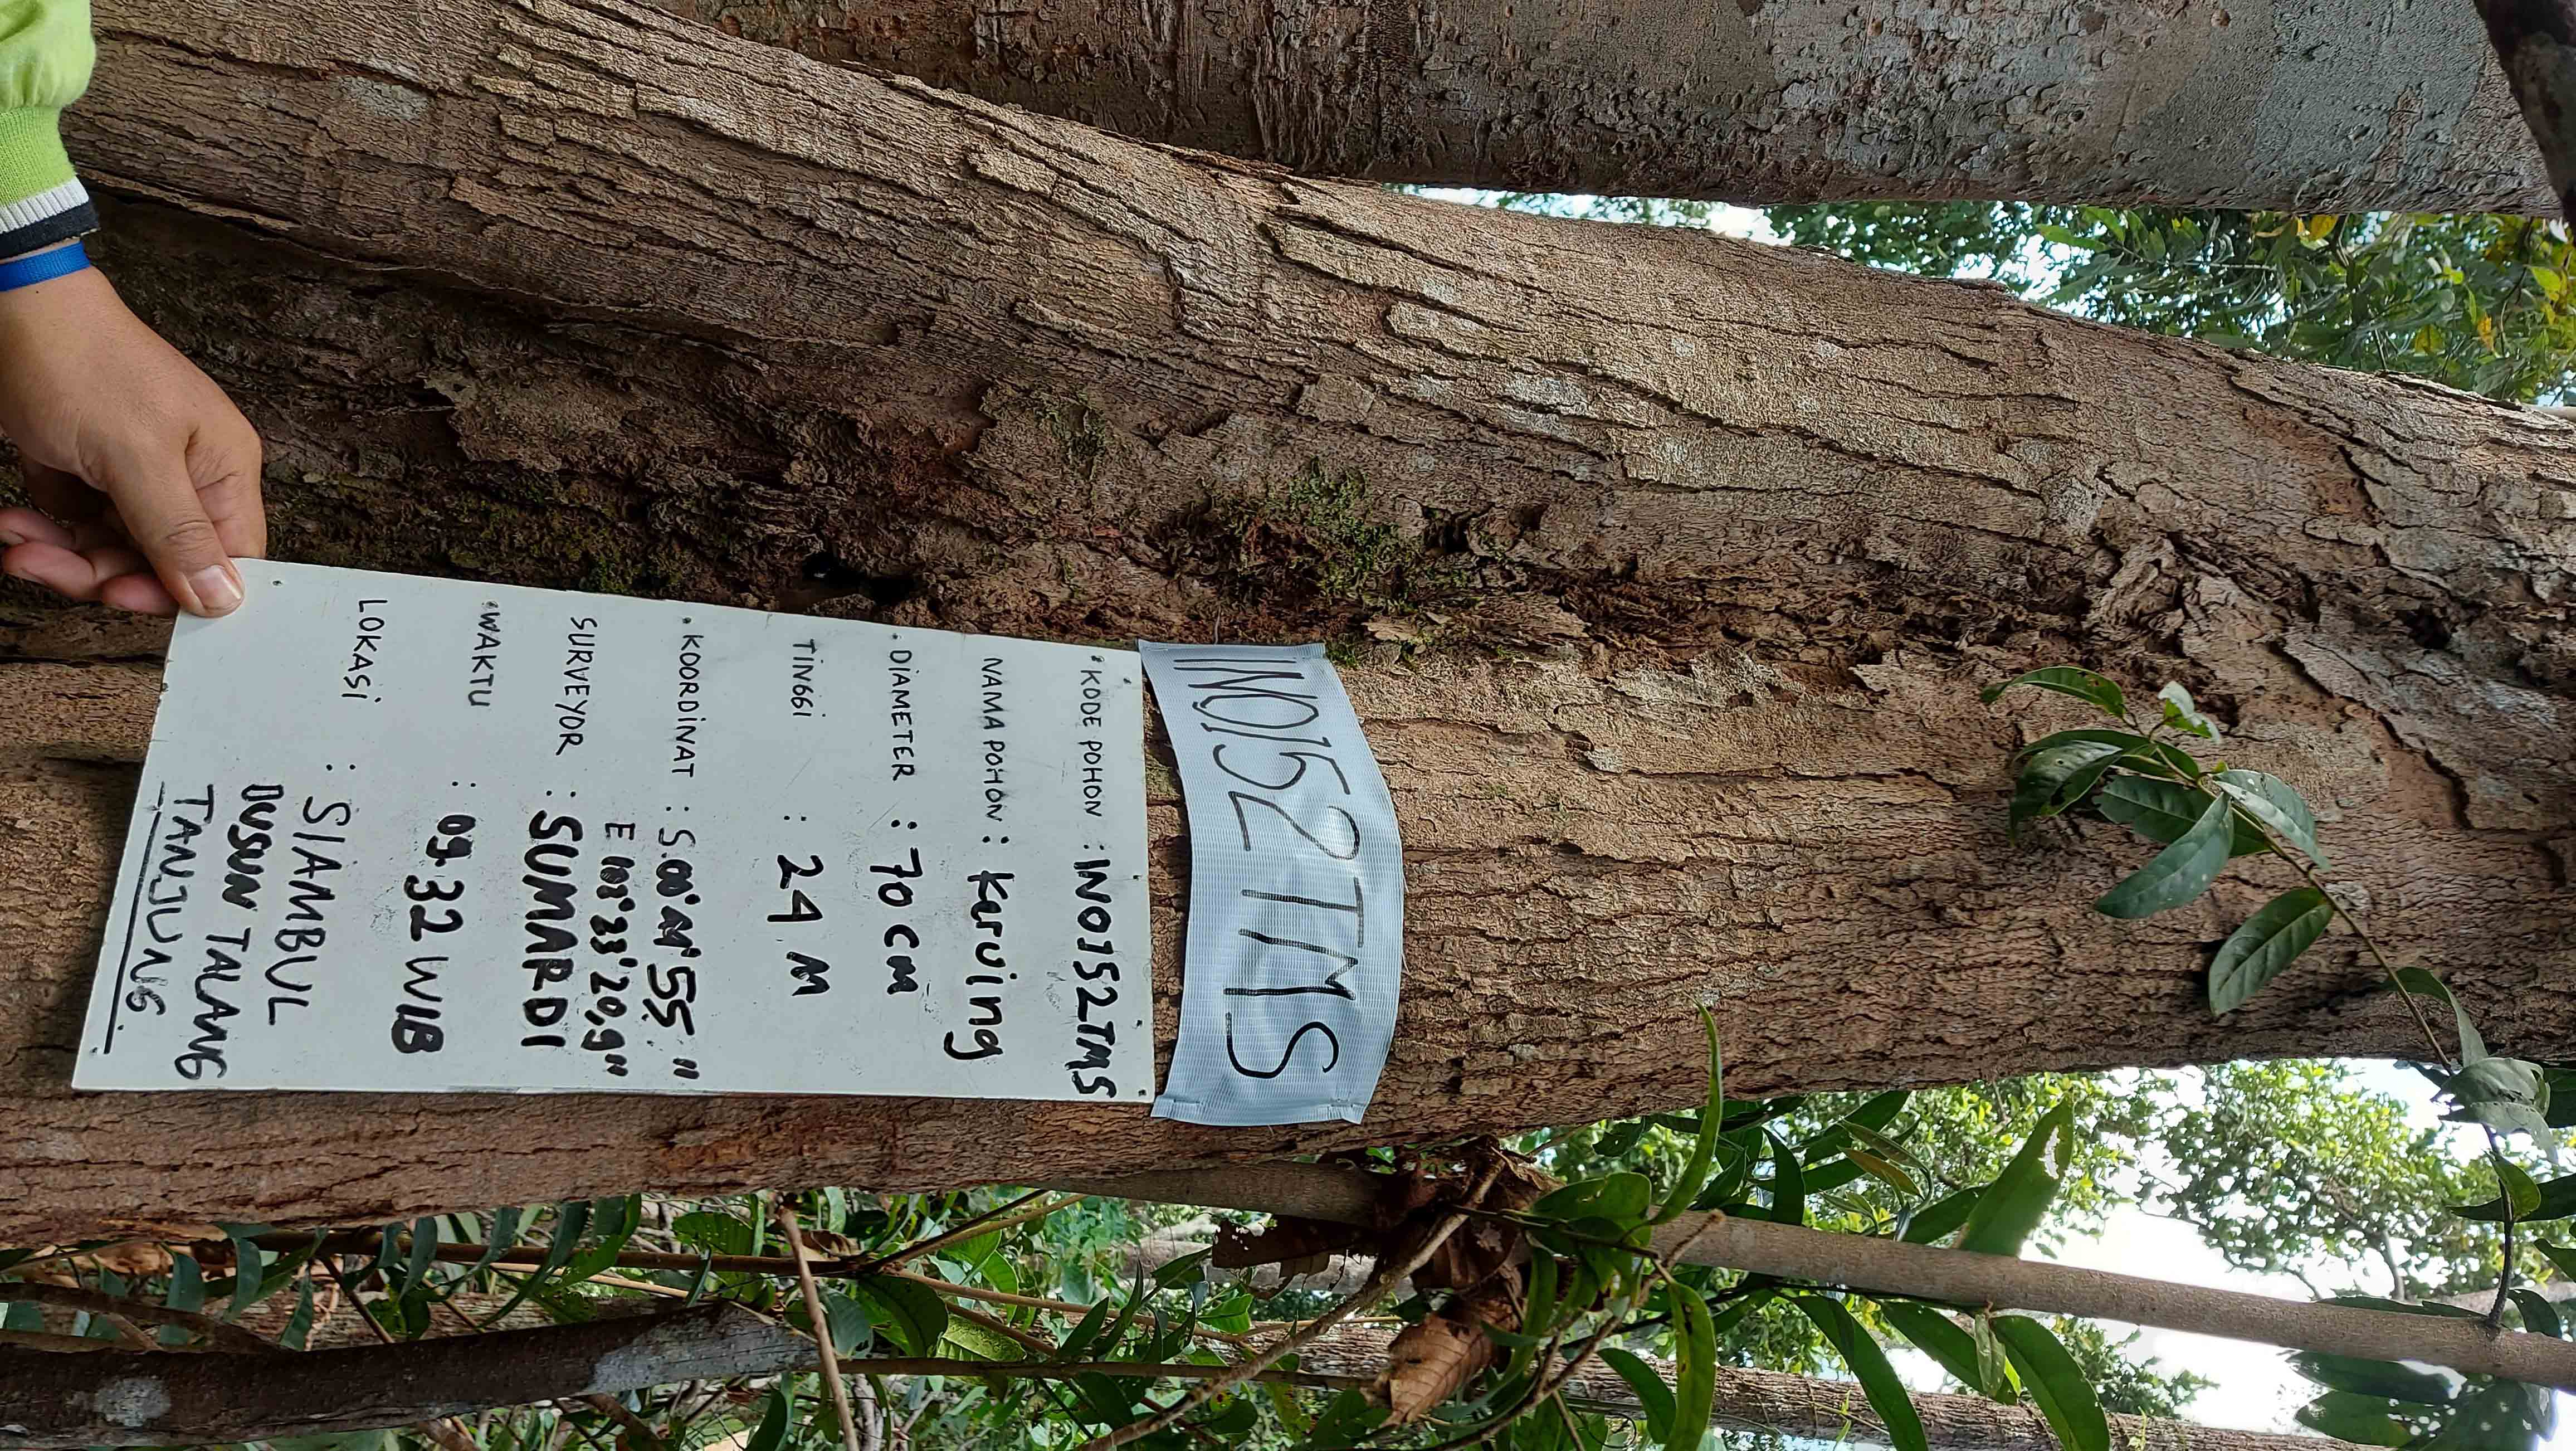 IN0152TMS
• KODE POHON : IN0152TMS
NAMA POHON : Keruing
• DIAMETER : 70 cm
TINGGI : 24 M
• KOORDINAT : S.00°44'55."
E 102°33'20,9"
SURVEYOR : SUMARDI
• WAKTU : 09.32 WIB
LOKASI : SIAMBUL
DUSUN TALANG
TANJUNG.